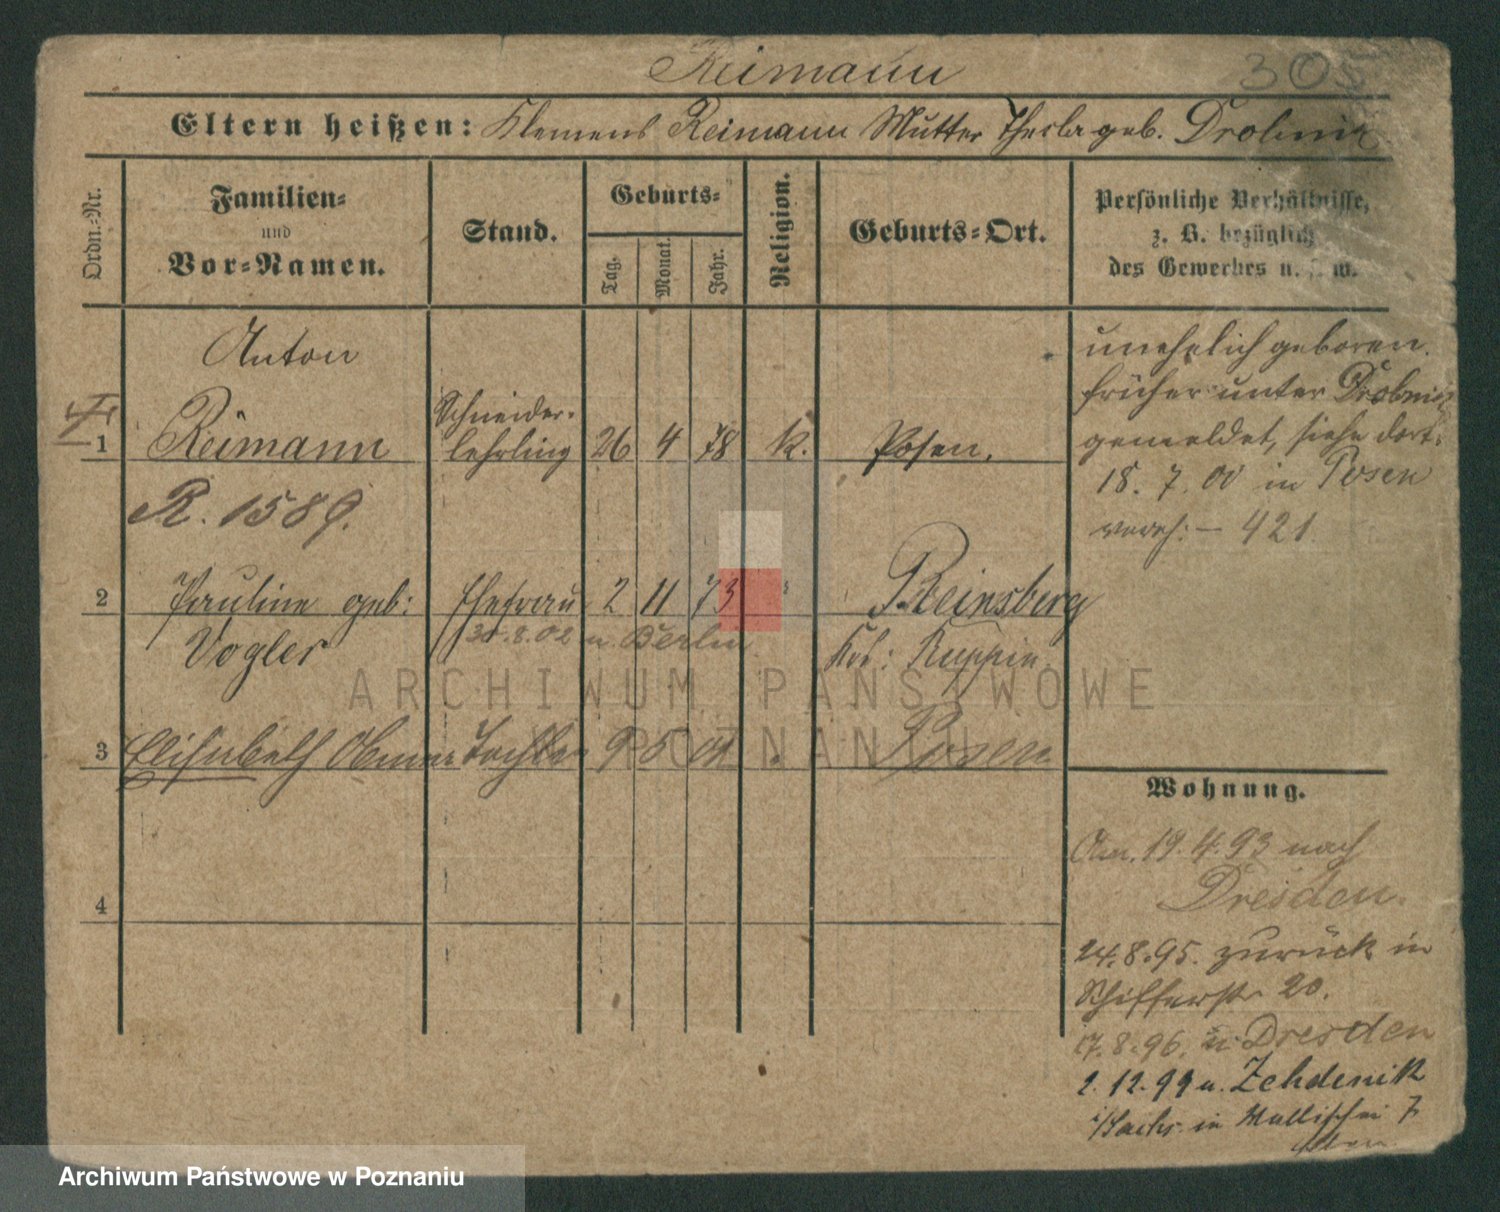 Reimann
305
Eltern heißen: Klemens Reimann Mutter Thecla geb. Drobnik
Ordn.-Nr.
Familien-
und
Vor-Namen.
Stand.
Geburts-
Tag.
Monat.
Jahr.
Religion.
Geburts-Ort.
Persönliche Verhältnisse,
z. B. bezüglich
des Gewerbes u. s. w.
1
Anton
Reimann
R. 1589.
Schneider-
lehrling
26 4 78 k. Posen.
unehelich geboren.
früher unter Drobnik
gemeldet, siehe dort.
18. 7. 00 in Posen
vereh: – 421
2
Pauline geb:
Vogler
Ehefrau 2 11 73 Rheinsberg
30.8.02 n. Berlin.
Krs: Ruppin
3 Elisabeth Tochter 9 5 01 Posen
4
Wohnung.
Am. 19.4.93 nach
Dresden.
24.8.95. zurück in
Schifferstr 20.
17.8.96. n Dresden
2.12.99 u. Zehdenick
in Wallischei 7
ARCHIWUM PAŃSTWOWE
W POZNANIU
Archiwum Państwowe w Poznaniu